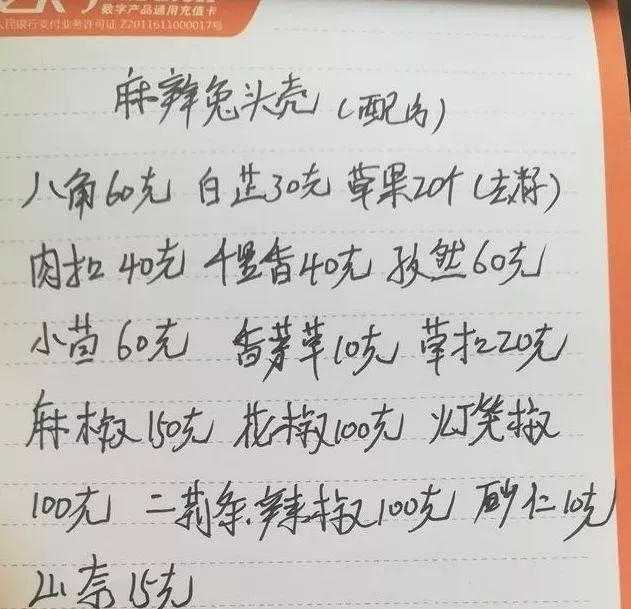 数字产品通用充值卡
人民银行支付业务许可证 Z2011611000017号
麻辣兔头壳(配方)
八角60克 白芷30克 草果20个(去籽)
肉扣40克 千里香40克 孜然60克
小茴60克 香茅草10克 草扣20克
麻椒150克 花椒100克 灯笼椒
100克 二荆条.辣椒100克 砂仁10克
山奈15克